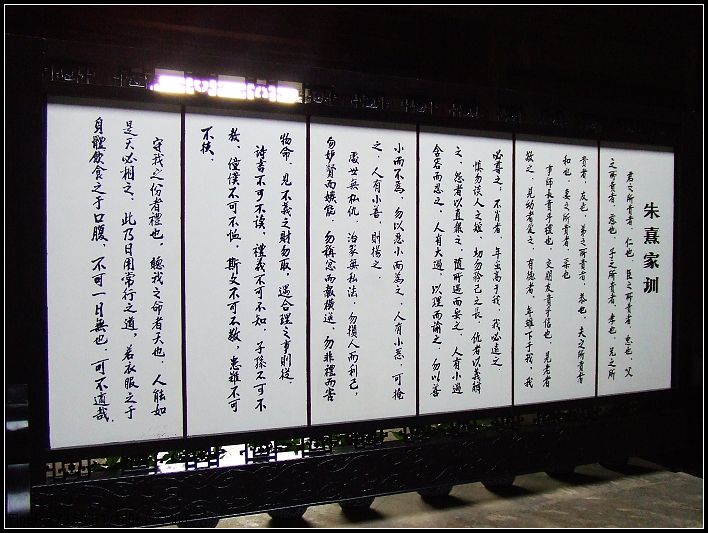 朱熹家训
君之所貴者，仁也。臣之所貴者，忠也。父
之所貴者，慈也。子之所貴者，孝也。兄之所
貴者，友也。弟之所貴者，恭也。夫之所貴者
和也。妻之所貴者，柔也
事師長貴乎禮也，交朋友貴乎信也。見老者
敬之，見幼者愛之。有德者，年雖下于我，我
必尊之。不肖者，年雖高于我，我必遠之。
慎勿談人之短，切勿矜己之長。仇者以義解
之，怨者以直報之，隨所遇而安之 人有小過
含容而忍之。人有大過，以理而諭之。勿以善
小而不為，勿以惡小而為之。人有小惡，可掩
之，人有小善，則揚之。
處世無私仇，治家無私法。勿損人而利己，
勿妒賢而嫉能。勿稱忿而報橫逆，勿非禮而害
物命。見不義之財勿取，遇合理之事則從
詩書不可不讀，禮義不可不知。子孫不可不
教，僮僕不可不恤。斯文不可不敬，患難不可
不扶。
守我之份者禮也，聽我之命者天也。人能如
是天必相之。此乃日用常行之道，若衣服之于
身體飲食之于口腹，不可一日無也，可不慎哉。